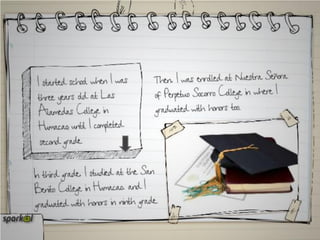 I started school when I was
three years old at Las
Alamedas College in
Humacao until I completed
second grade.
In third grade, I studied at the San
Benito College in Humacao and I
graduated with honors in ninth grade.
Then I was enrolled at Nuestra Señora
of Perpetuo Socorro College in where I
graduated with honors too.
sparkol